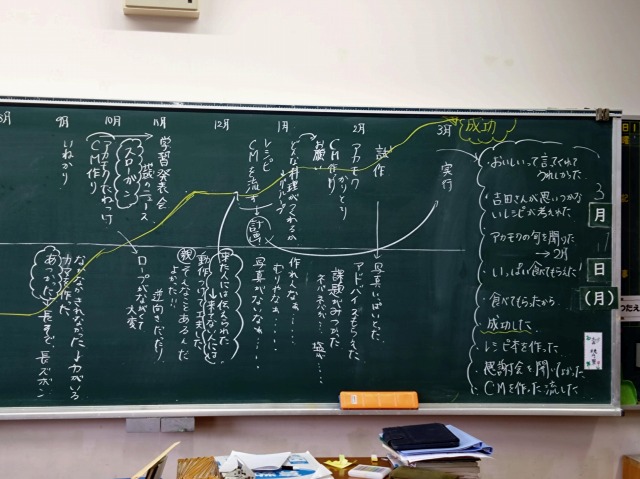 8月
9月
10月
11月
12月
1月
2月
3月
成功
いねかり
アカモクたねつけ
CM作り
スローガン
学習発表会
歳のニュース
レシピ
CMを流す
どんな料理がつくれるか
お願い
アカモク
かりとり
CM作り
試作
実行
計画
なかなかきれなかった↓力がいる
カマを作った
あつかった 半長そで、長ズボン
ロープがながくて
大変
逆向きだったり
親 そんなことあるんだ
よかった!!
来た人には伝えられた
↓来てない人には
動作つけて工夫した
作れへんなぁ・・・・
むりやなぁ・・・・
写真がないなぁ・・・・
写真いっぱいとった
アドバイスをもらえた
課題がみつかった
ネバネバが・・塩が・・・
・おいしいって言ってくれて
うれしかった
・吉田さんが思いつかな
いレシピが考えれた
・アカモクの旬を聞いた
→2月
・いっぱい食べてもらえた
・食べてもらったから
成功した
・レシピ本を作った
・感謝会を開いてよかった
・CMを作った流した
3
月
17
日
(月)